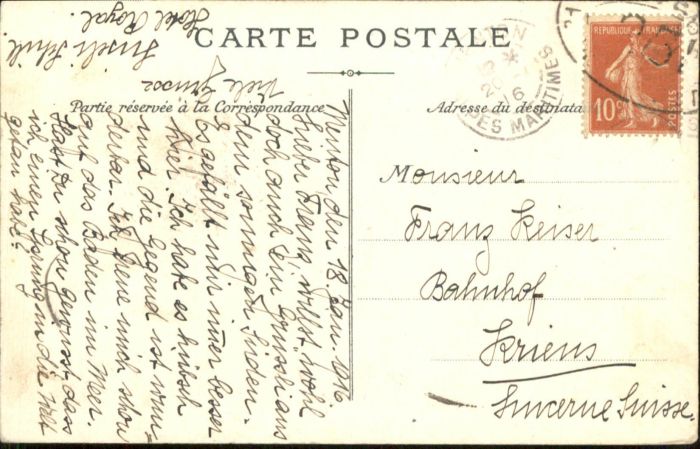 CARTE POSTALE
Partie réservée à la Correspondance
Adresse du destinata
RÉPUBLIQUE FRANÇAISE
10c
POSTES
MENTON
20
16
ALPES MARITIMES
Menton den 18. Jan. 1916
Lieber Franz, willst wohl
doch auch ein Grüssli aus
dem sonnigen Süden.
Es gefällt mir immer besser
hier. Ich habe es hübsch
und die Gegend ist wun-
derbar. Ich freue mich schon
auf das Baden im Meer.
Hast Du schon gewusst, dass
ich einen Sprung in die Welt
getan habe?
Viele Grüsse
Hotel Royal.
Monsieur
Franz Keiser
Bahnhof
Kriens
Lucerne Suisse.